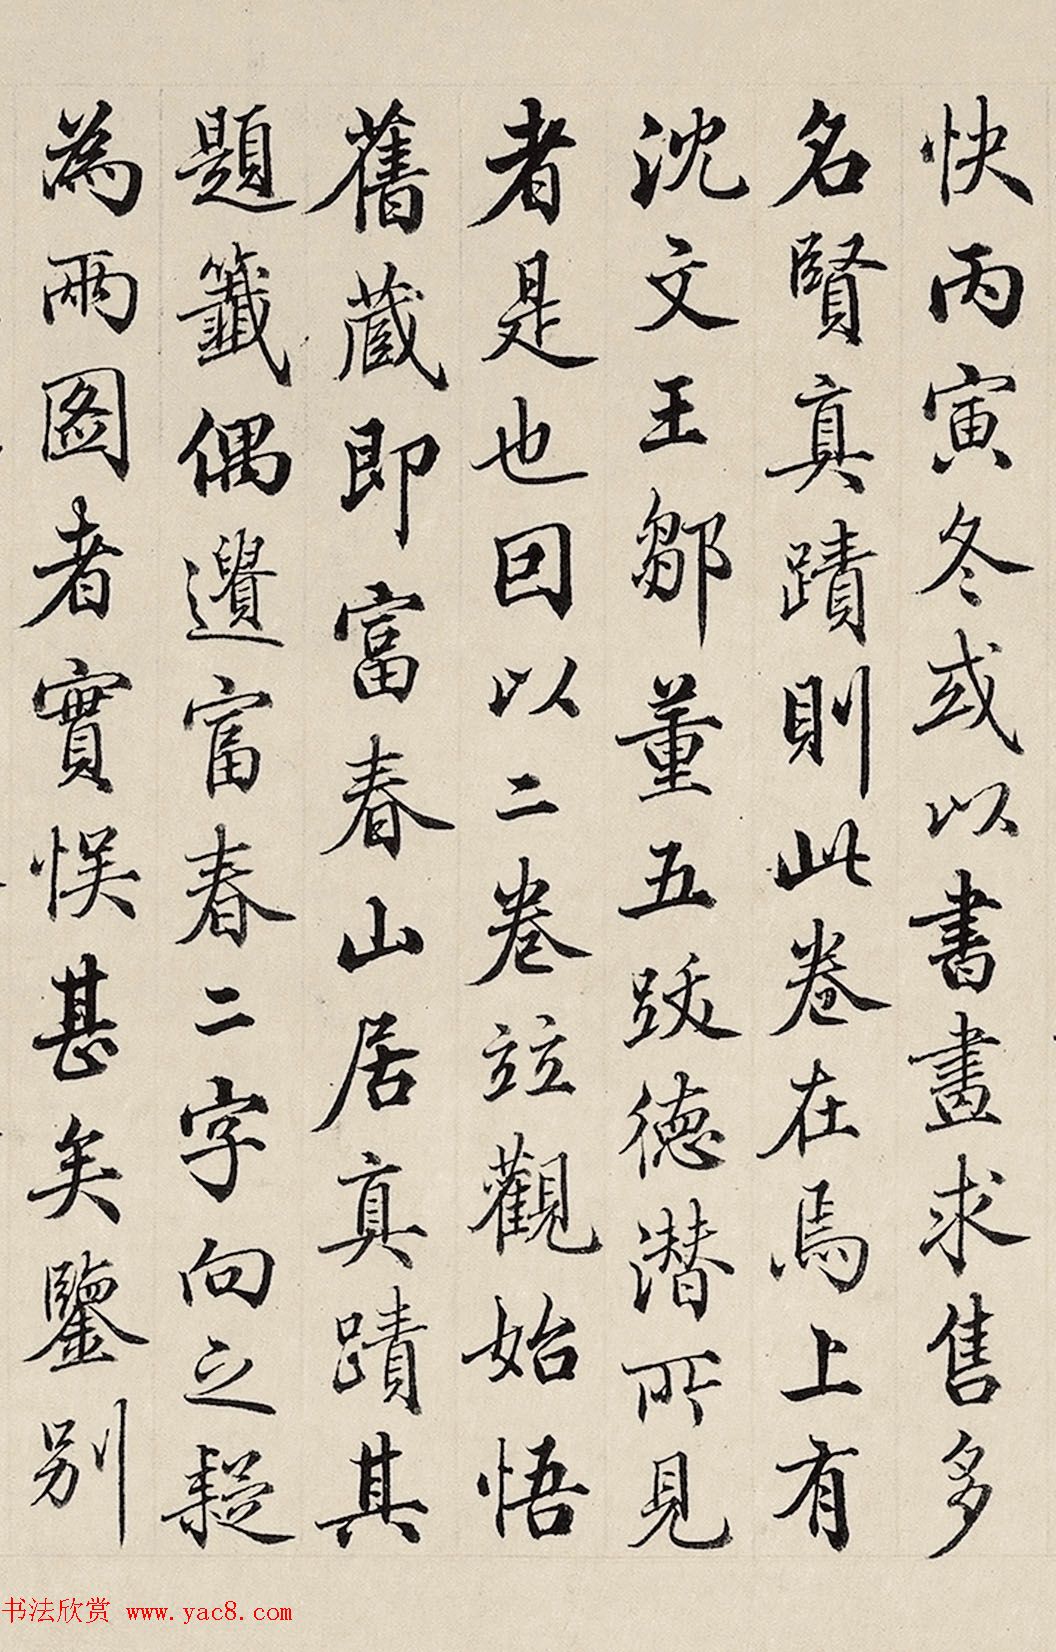 快丙寅冬或以書畫求售多
名賢真蹟則此卷在焉上有
沈文王鄒董五跋德潛所見
者是也因以二卷竝觀始悟
舊蔵即富春山居真蹟其
題籤偶遺富春二字向之疑
為兩图者實悮甚矣鑒别
书法欣赏 www.yac8.com